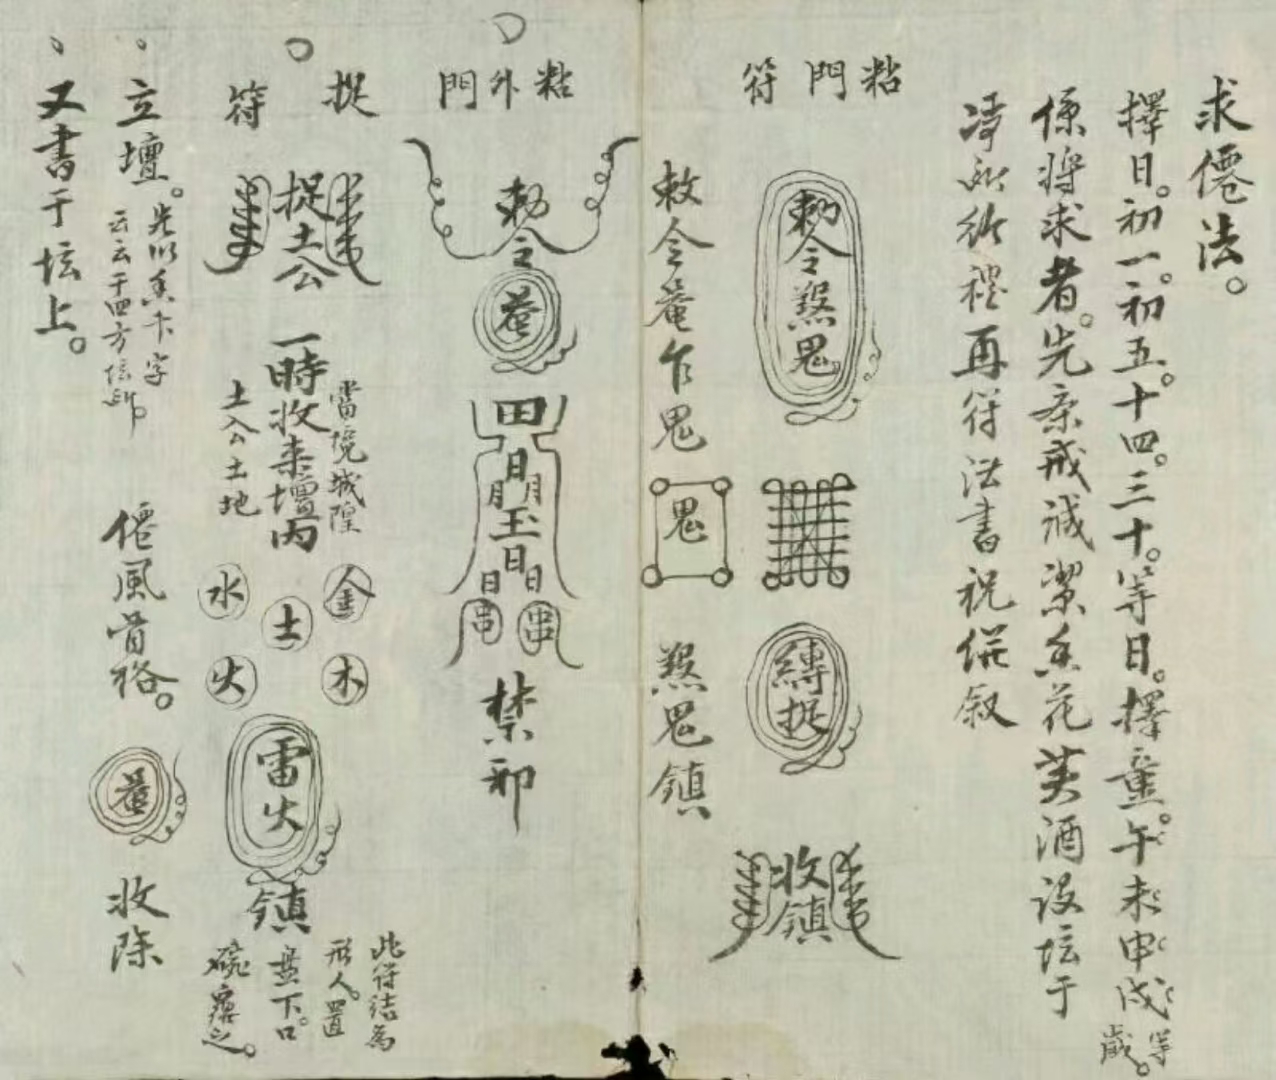 求僊法。
擇日。初一。初五。十四。三十。等日。擇童。午未申戌等歲。
係將求者。先齋戒誠潔香花芙酒設坛于
淨處行禮再符法書祝併叙
粘門符
勅令煞鬼
縛捉
收鎮
敕令奄乍鬼
鬼
煞鬼鎮
粘外門
勅令
奄
田
日
月月
玉
日
日日
串串
禁邪
捉符
捉土公
當境城隍
一時收来壇内
土公土地
金木
土
水火
雷火
鎮
此符結為
形人。置
盘下。口
碗 之。
立壇。先以香卞字
云云于四方
僊風骨格。
奄
收除
又書于坛上。